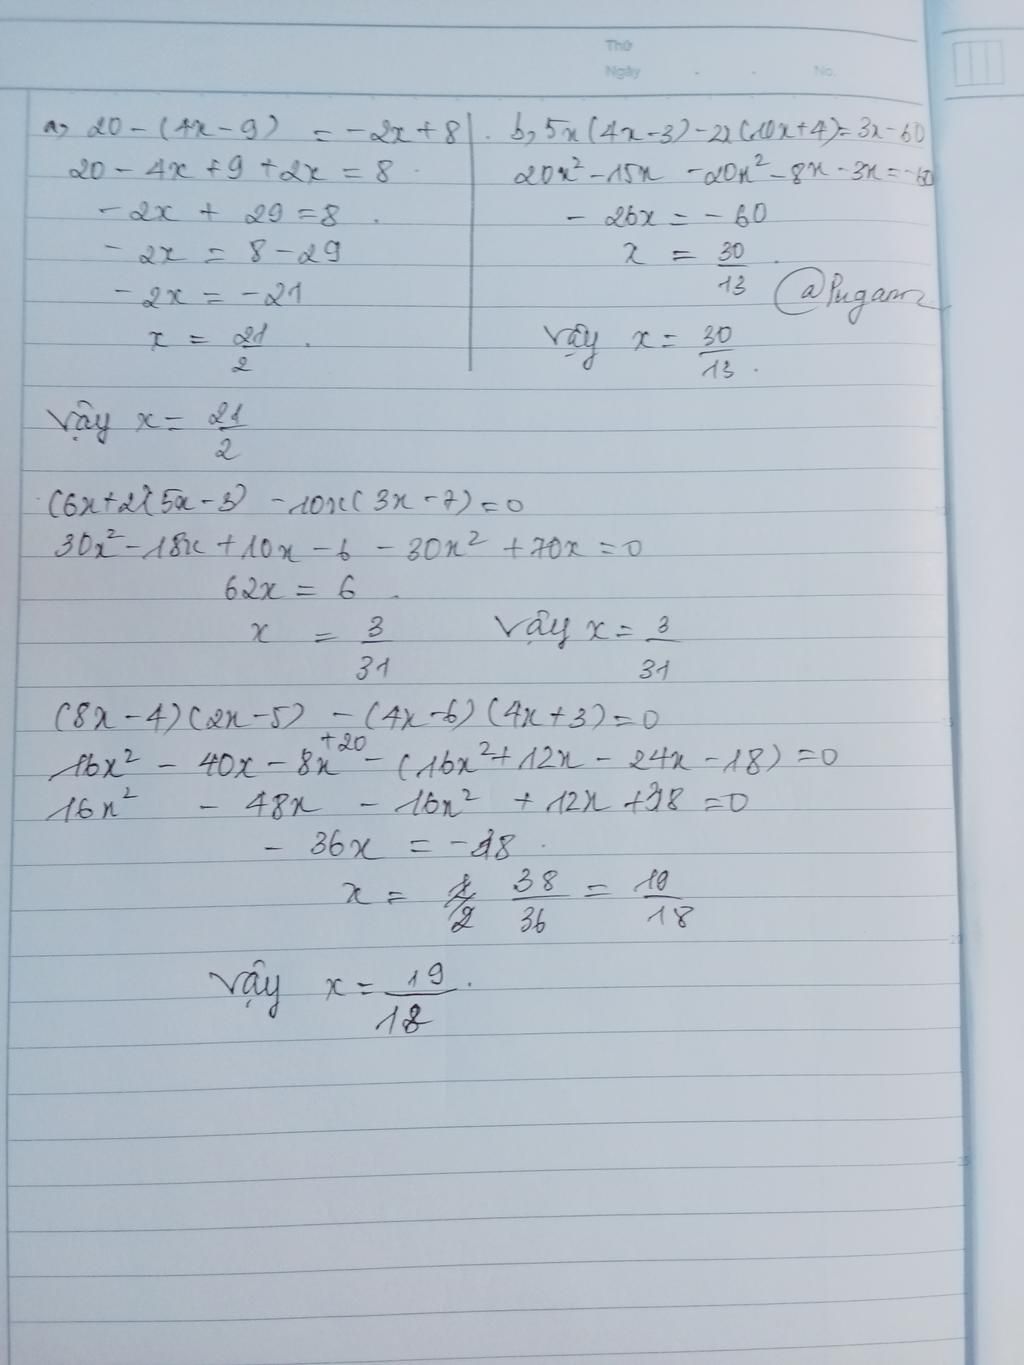 Thứ
Ngày . . No.
a, 20 - (4x - 9) = -2x + 8
20 - 4x + 9 + 2x = 8
- 2x + 29 = 8
- 2x = 8 - 29
- 2x = -21
x = 21/2
Vậy x = 21/2
b, 5x(4x - 3) - 2x(10x + 4) = 3x - 60
20x² - 15x - 20x² - 8x - 3x = -60
- 26x = - 60
x = 30/13
@Pugamz
Vậy x = 30/13
(6x + 2)(5x - 3) - 10x(3x - 7) = 0
30x² - 18x + 10x - 6 - 30x² + 70x = 0
62x = 6
x = 3/31 Vậy x = 3/31
(8x - 4)(2x - 5) - (4x - 6)(4x + 3) = 0
16x² - 40x - 8x + 20 - (16x² + 12x - 24x - 18) = 0
16x² - 48x - 16x² + 12x + 38 = 0
- 36x = - 38
x = 38/36 = 19/18
Vậy x = 19/18